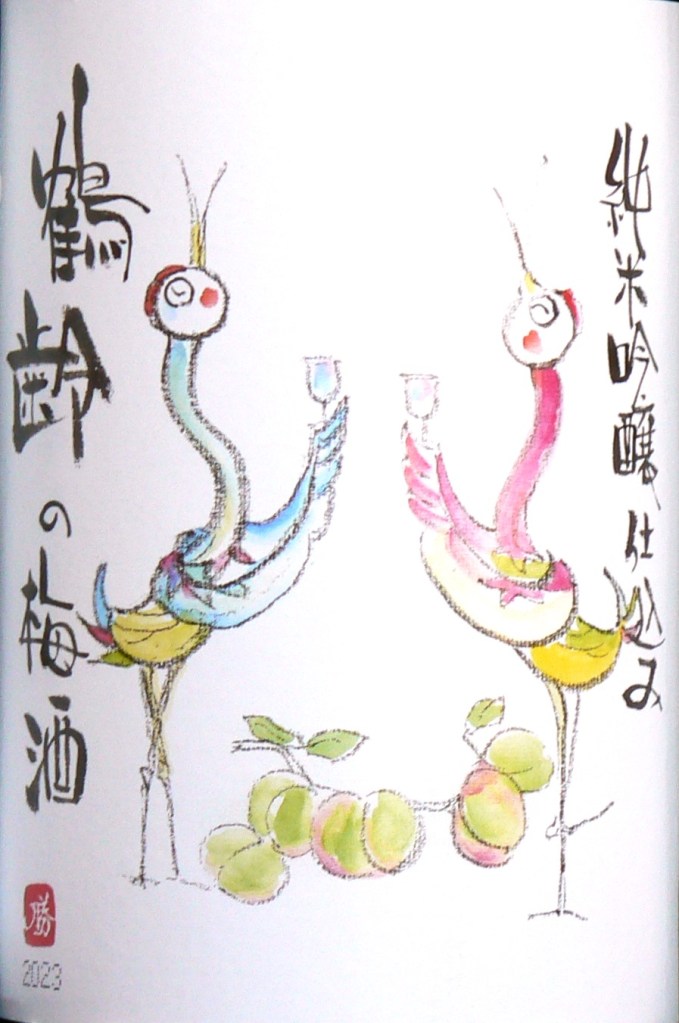 純米吟醸仕込み
鶴齢の梅酒
勝
2023